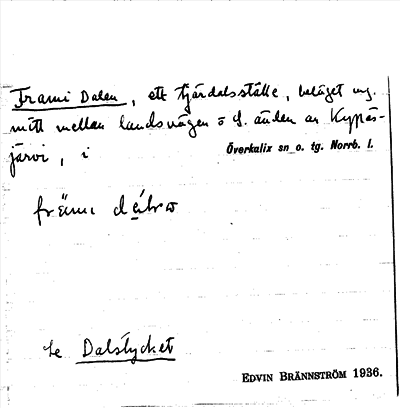 Frami Dalen, ett tjärdalsställe, beläget ung.
mitt mellan landsvägen o S. änden av Kypäs-
järvi, i Överkalix sn o. tg. Norrb. l.
främi
se Dalstycket
EDVIN BRÄNNSTRÖM 1936.